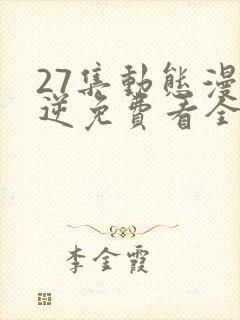 27集動態漫
逆免費看全
李金霞